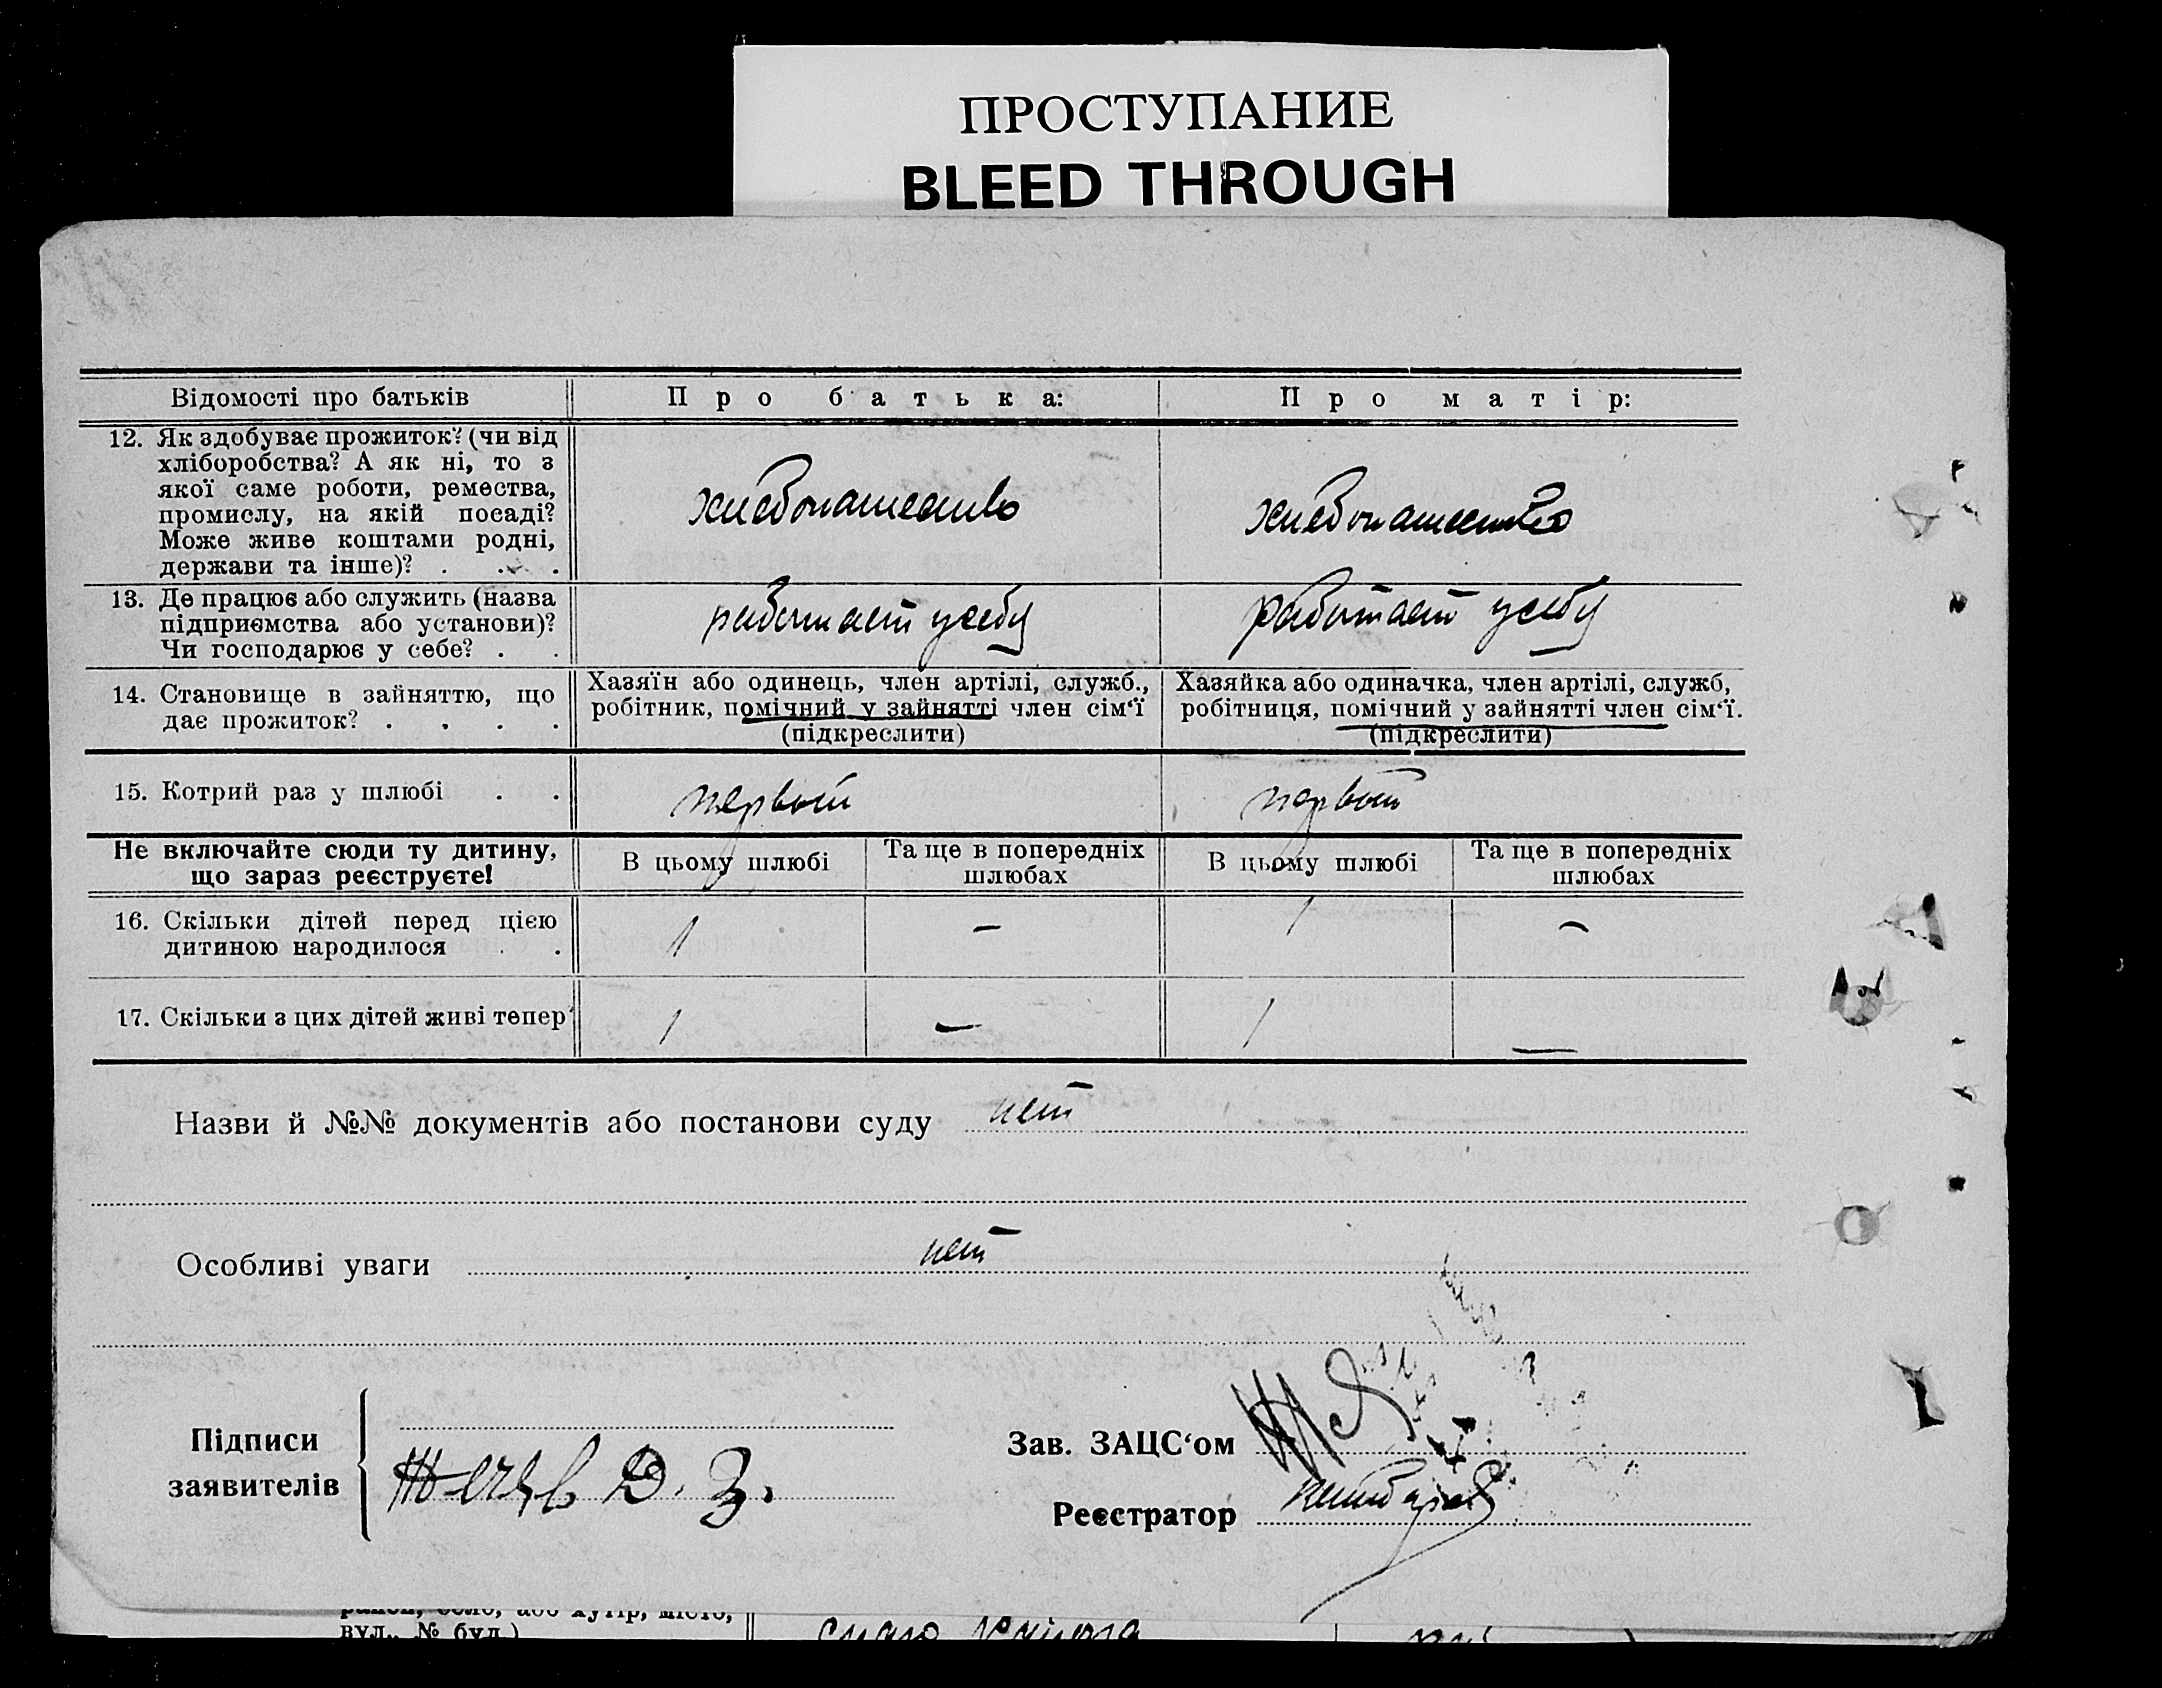 ПРОСТУПАНИЕ
BLEED THROUGH
Відомості про батьків
Про батька:
Про матір:
12. Як здобуває прожиток? (чи від
хліборобства? А як ні, то з
якої саме роботи, ремества,
промислу, на якій посаді?
Може живе коштами родні,
держави та інше)? . . .
хлебопашество
хлебопашество
13. Де працює або служить (назва
підприємства або установи)?
Чи господарює у себе? . .
работает у себя
работает у себя
14. Становище в зайняттю, що
дає прожиток? . . . .
Хазяїн або одинець, член артілі, служб.,
робітник, помічний у зайнятті член сім‘ї
(підкреслити)
Хазяйка або одиначка, член артілі, служб,
робітниця, помічний у зайнятті член сім‘ї.
(підкреслити)
15. Котрий раз у шлюбі . .
первый
первый
Не включайте сюди ту дитину,
що зараз реєструєте!
В цьому шлюбі
Та ще в попередніх
шлюбах
В цьому шлюбі
Та ще в попередніх
шлюбах
16. Скільки дітей перед цією
дитиною народилося . .
1
—
1
—
17. Скільки з цих дітей живі тепер
1
—
1
—
Назви й №№ документів або постанови суду нет
Особливі уваги нет
Підписи
заявителів
Д. З.
Зав. ЗАЦС‘ом
Реєстратор
район, село, або хутір, місто,
вул., № буд.)